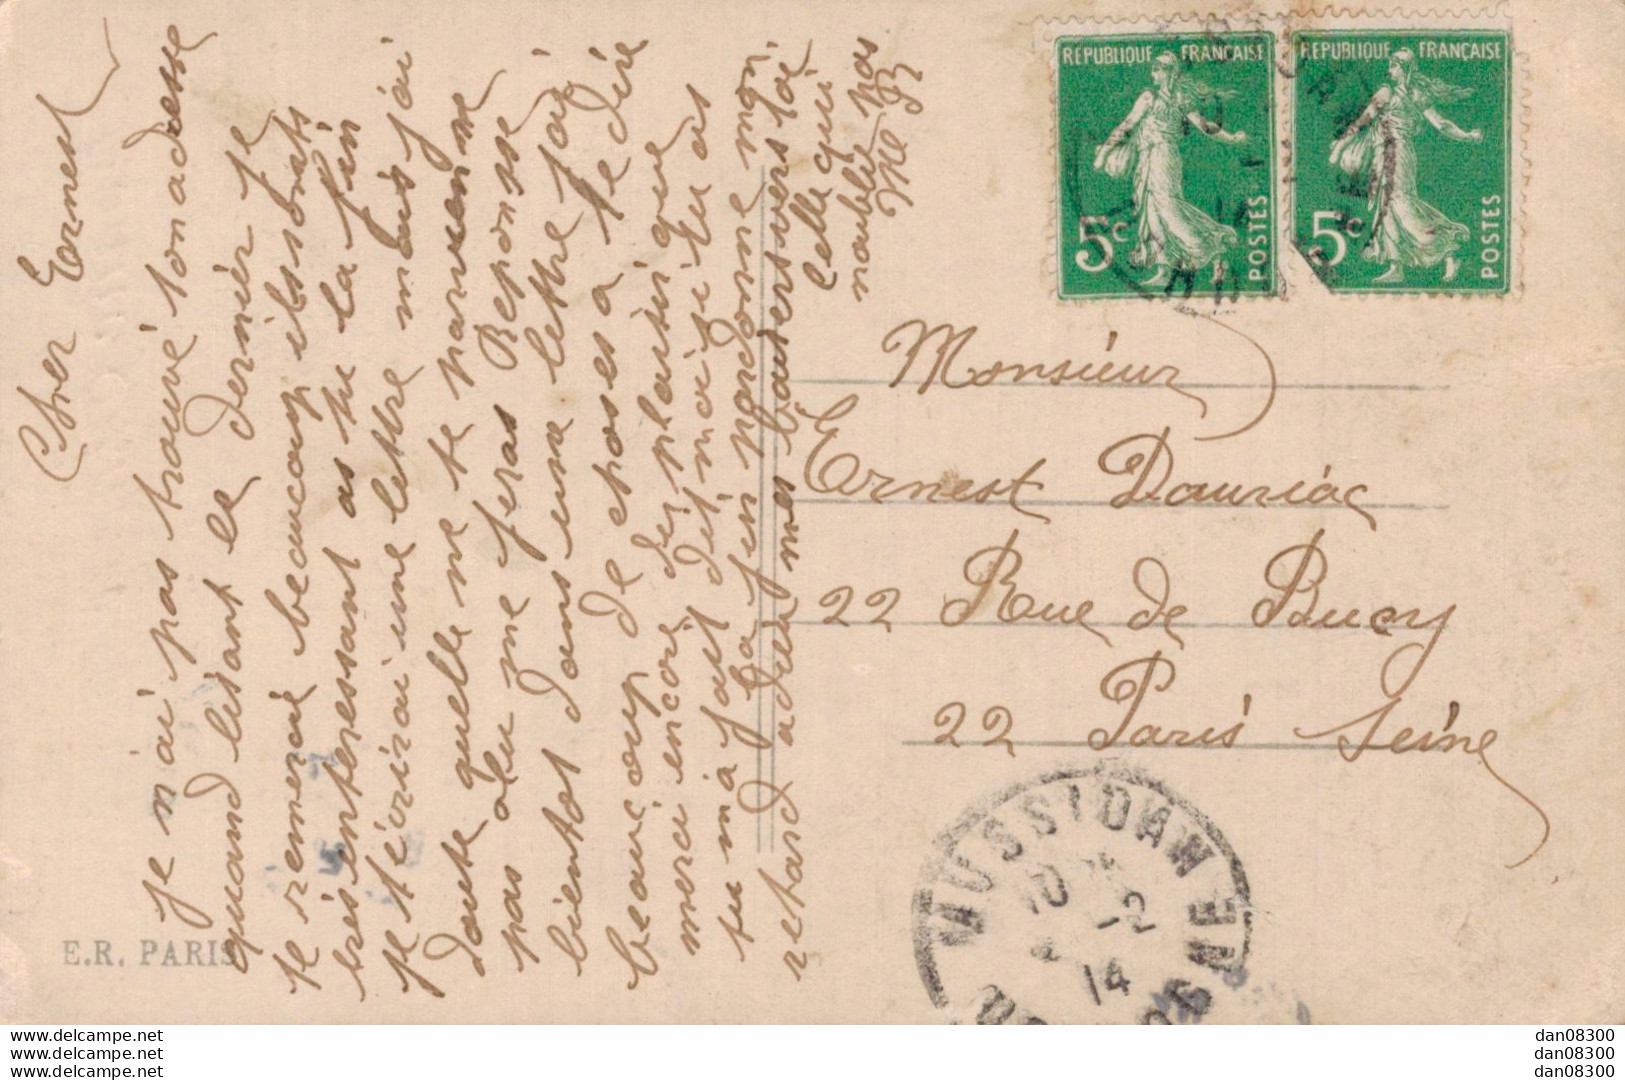 Cher Ernest
je n'ai pas trouvé ton adresse
quand lisant le dernier je
te remercie beaucoup ils sont
très intéressant as tu la fin
je t'écrirai une lettre mais j'ai
doute quelle ne te parvienne
pas a lu me feras Reponse
bientot dans une lettre j'ai
beaucoup de choses a te dire
merci encore des plaisir que
tu m'a fait dit moi si tu as
la fin pardonne mon
retard adieu mes baisers vers toi
celle qui
n'oublie pas
Me B
RÉPUBLIQUE FRANÇAISE
5c POSTES
RÉPUBLIQUE FRANÇAISE
5c POSTES
Monsieur
Ernest Dauriac
22 Rue de Bucy
22 Paris Seine
MUSSIDAN
10
-2
14
DORDOGNE
E.R. PARIS
dan08300
dan08300
dan08300
dan08300
dan08300
dan08300